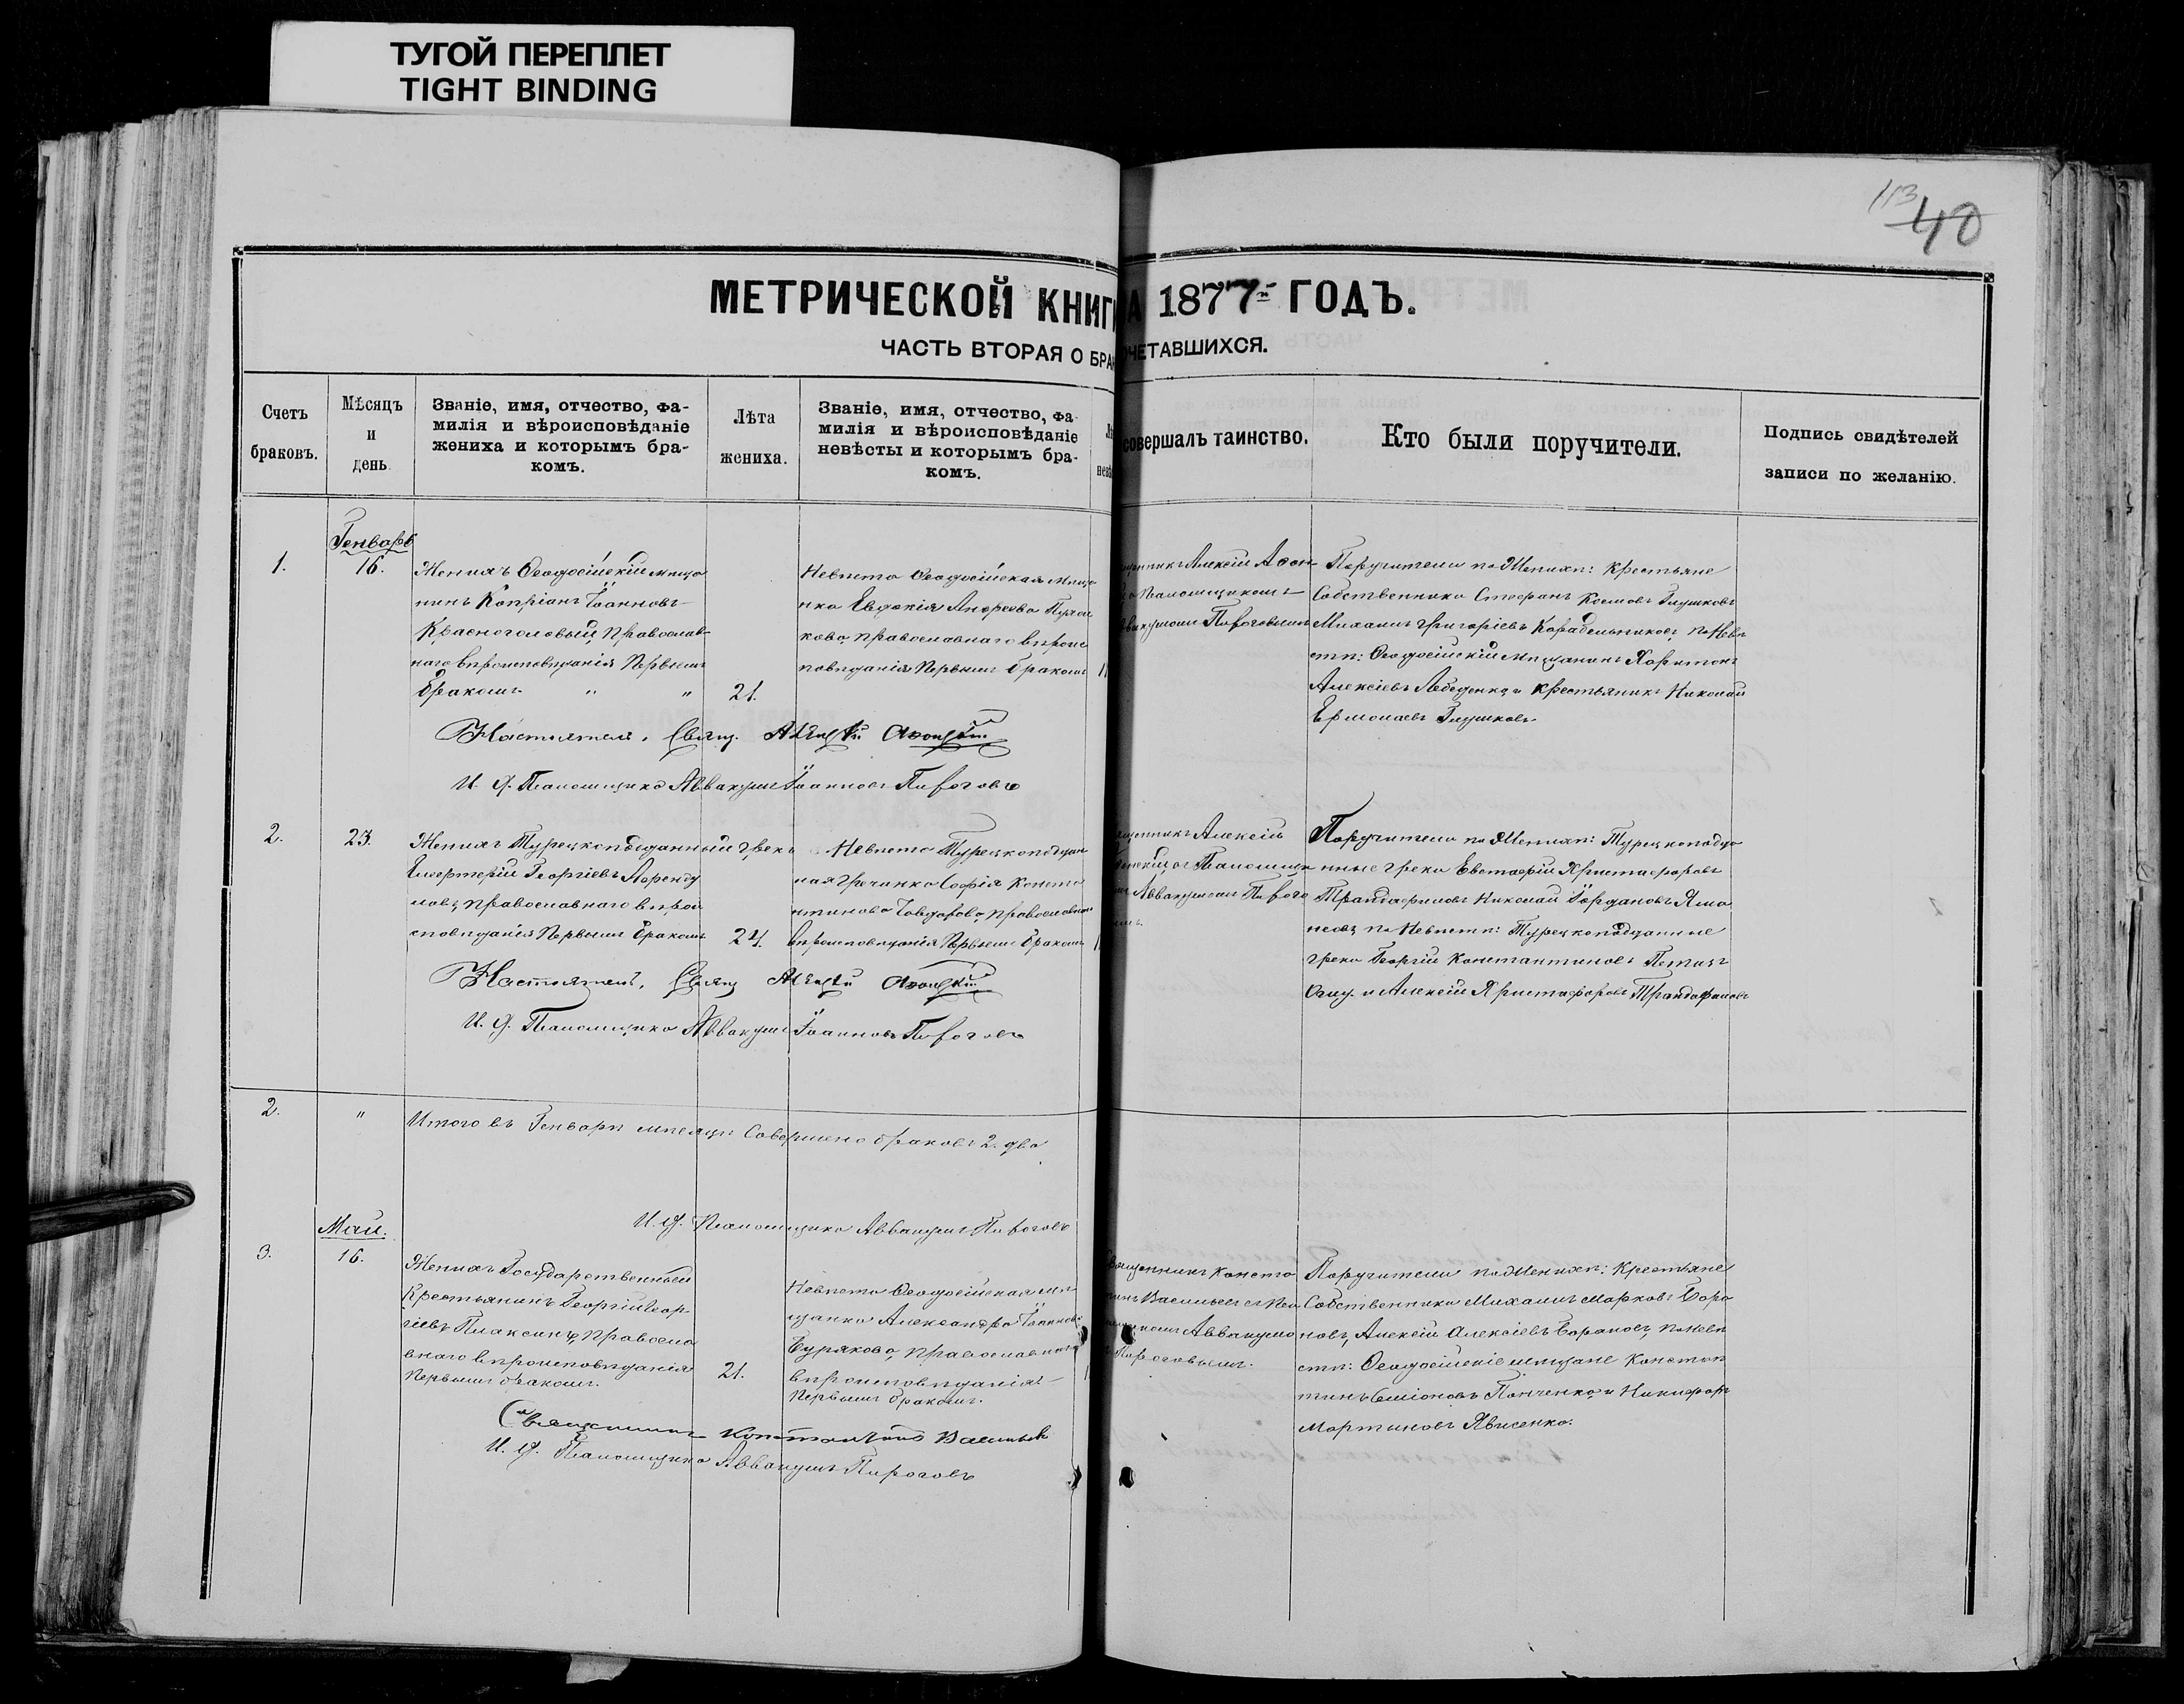 ТУГОЙ ПЕРЕПЛЕТ
TIGHT BINDING
113
40
МЕТРИЧЕСКОЙ КНИГ
А 1877й ГОДЪ.
ЧАСТЬ ВТОРАЯ О БРАК
ОЧЕТАВШИХСЯ.
Счетъ
браковъ.
Мѣсяцъ
и
день.
Званіе, имя, отчество, фа-
милія и вѣроисповѣданіе
жениха и которымъ бра-
комъ.
Лѣта
жениха.
Званіе, имя, отчество, фа-
милія и вѣроисповѣданіе
невѣсты и которымъ бра-
комъ.
совершалъ таинство.
Кто были поручители.
Подпись свидѣтелей
записи по желанію.
1.
Генварь
16.
Женихъ Ѳеодосійскій мѣща
нинъ Капріанъ Іоанновъ
Красноголовый, Православ-
наго вѣроисповѣданія Первымъ
бракомъ " "
21.
Невѣста Ѳеодосійская Мѣща
нка Евдокія Андреева
кова, православнаго вѣроис
повѣданія Первымъ бракомъ
Алексій Аѳон
Паломщикомъ
Пироговымъ
Поручители по Женихѣ: Крестьяне
Собственники Стефанъ Космовъ Глушковъ
Михаилъ Григоріевъ Карабельниковъ, по Невѣ
стѣ: Ѳеодосійскій Мѣщанинъ Харитонъ
Алексіевъ Лебеденко, и Крестьянинъ Николай
Ермолаевъ Глушковъ
Настоятель, Свящ. Алексѣй
И. Д. Псаломщика Аввакумъ Іоанновъ Пироговъ
2.
23.
Женихъ Турецкоподданный грекъ
Елефтерій Георгіевъ
ловъ, православнаго вѣрои
сповѣданія Первымъ бракомъ
24.
Невѣста Турецкоподдан
ная Гречанка Софія Конста
нтинова православнаго
вѣроисповѣданія Первымъ бракомъ
Алексій
Псаломщик
Аввакумомъ Пирого
вымъ.
Поручители по Женихѣ: Турецкоподда
нные греки Евстафій Христафоровъ
Трандафиловъ Николай Іордановъ
по Невѣстѣ: Турецкоподданные
греки Георгій Константиновъ
и Алексій Христафоровъ Трандафиловъ
Настоятель, Свящ Алексѣй
И. Д. Псаломщика Аввакумъ Іоанновъ Пироговъ
2.
"
Итого въ Генварѣ мѣсяцѣ Совершено браковъ 2. два
И. Д. Псаломщика Аввакумъ Пироговъ
3.
Май.
16.
Женихъ Государственный
Крестьянинъ Георгій Геор
гіевъ Плаксинъ, Правосла
внаго вѣроисповѣданія
Первымъ бракомъ.
21.
Невѣста Ѳеодосійская мѣ
щанка Александра Іоаннова
Бурякова, православнаго
вѣроисповѣданія
Первымъ бракомъ.
Священникъ Конста
Васильевъ съ Пса
Аввакумо
Пироговымъ.
Поручители по Женихѣ: Крестьяне
Собственники Михаилъ Марковъ Бара
новъ, Алексій Алексіевъ Барановъ, по Невѣ
стѣ: Ѳеодосійскіе мѣщане Констан
тинъ Симіоновъ Панченко, и Никифоръ
Мартыновъ
Священникъ Константинъ Васильевъ
И. Д. Псаломщика Аввакумъ Пироговъ